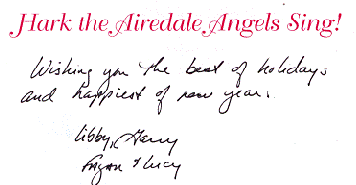 Hark the Airedale Angels Sing!
Wishing you the best of holidays
and happiest of new years.
Libby, Gerry
& Lucy